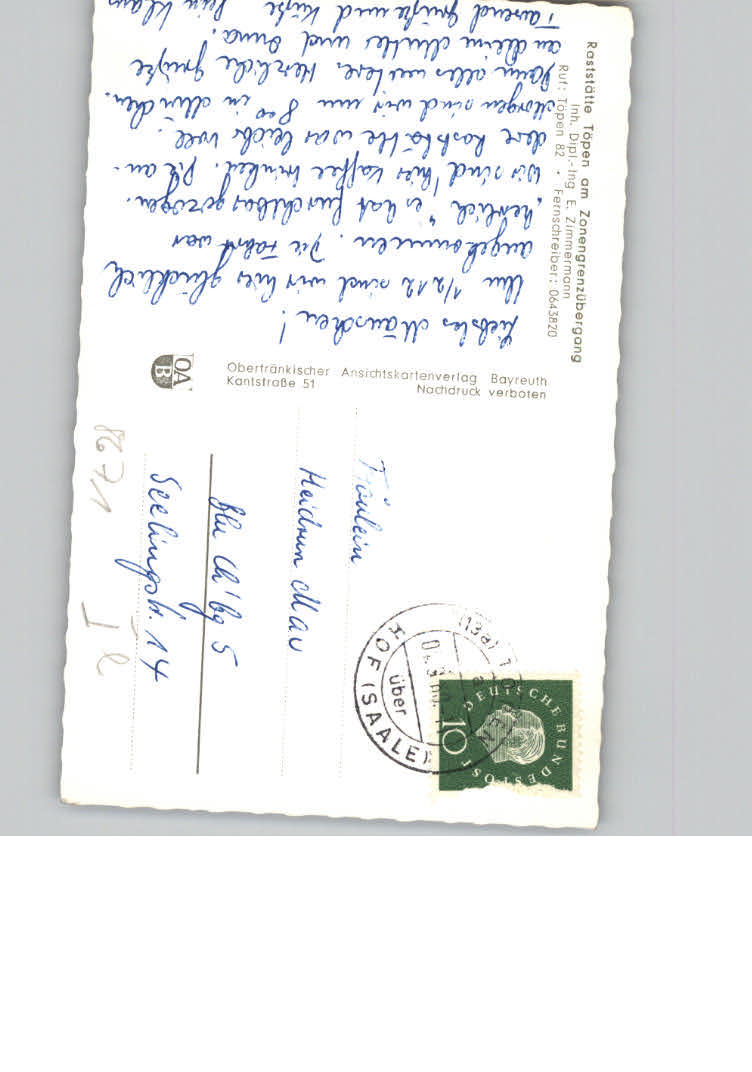 Raststätte Töpen am Zonengrenzübergang
Inh. Dipl.-Ing. E. Zimmermann
Ruf: Töpen 82 • Fernschreiber: 0643820
Liebstes Mäuschen!
Um 1/2 12 sind wir hier glücklich
angekommen. Die Fahrt war
"herrlich" es hat furchtbar gezogen.
Wir sind hier Kaffee trinken.
der Raststätte war leicht voll.
Morgen sind wir um 8⁰⁰ in München.
Dann alles weitere. Herzliche Grüße
an Deine Mutter und Oma.
Tausend Grüße und Küße Dein Klaus
Oberfränkischer Ansichtskartenverlag Bayreuth
Kantstraße 51 Nachdruck verboten
OA
B
Fräulein
Heidrun Mau
Bln Ch'bg 5
Seelingstr. 14
8671
(13a) TÖPEN
über
HOF (SAALE)
a
DEUTSCHE BUNDESPOST
10